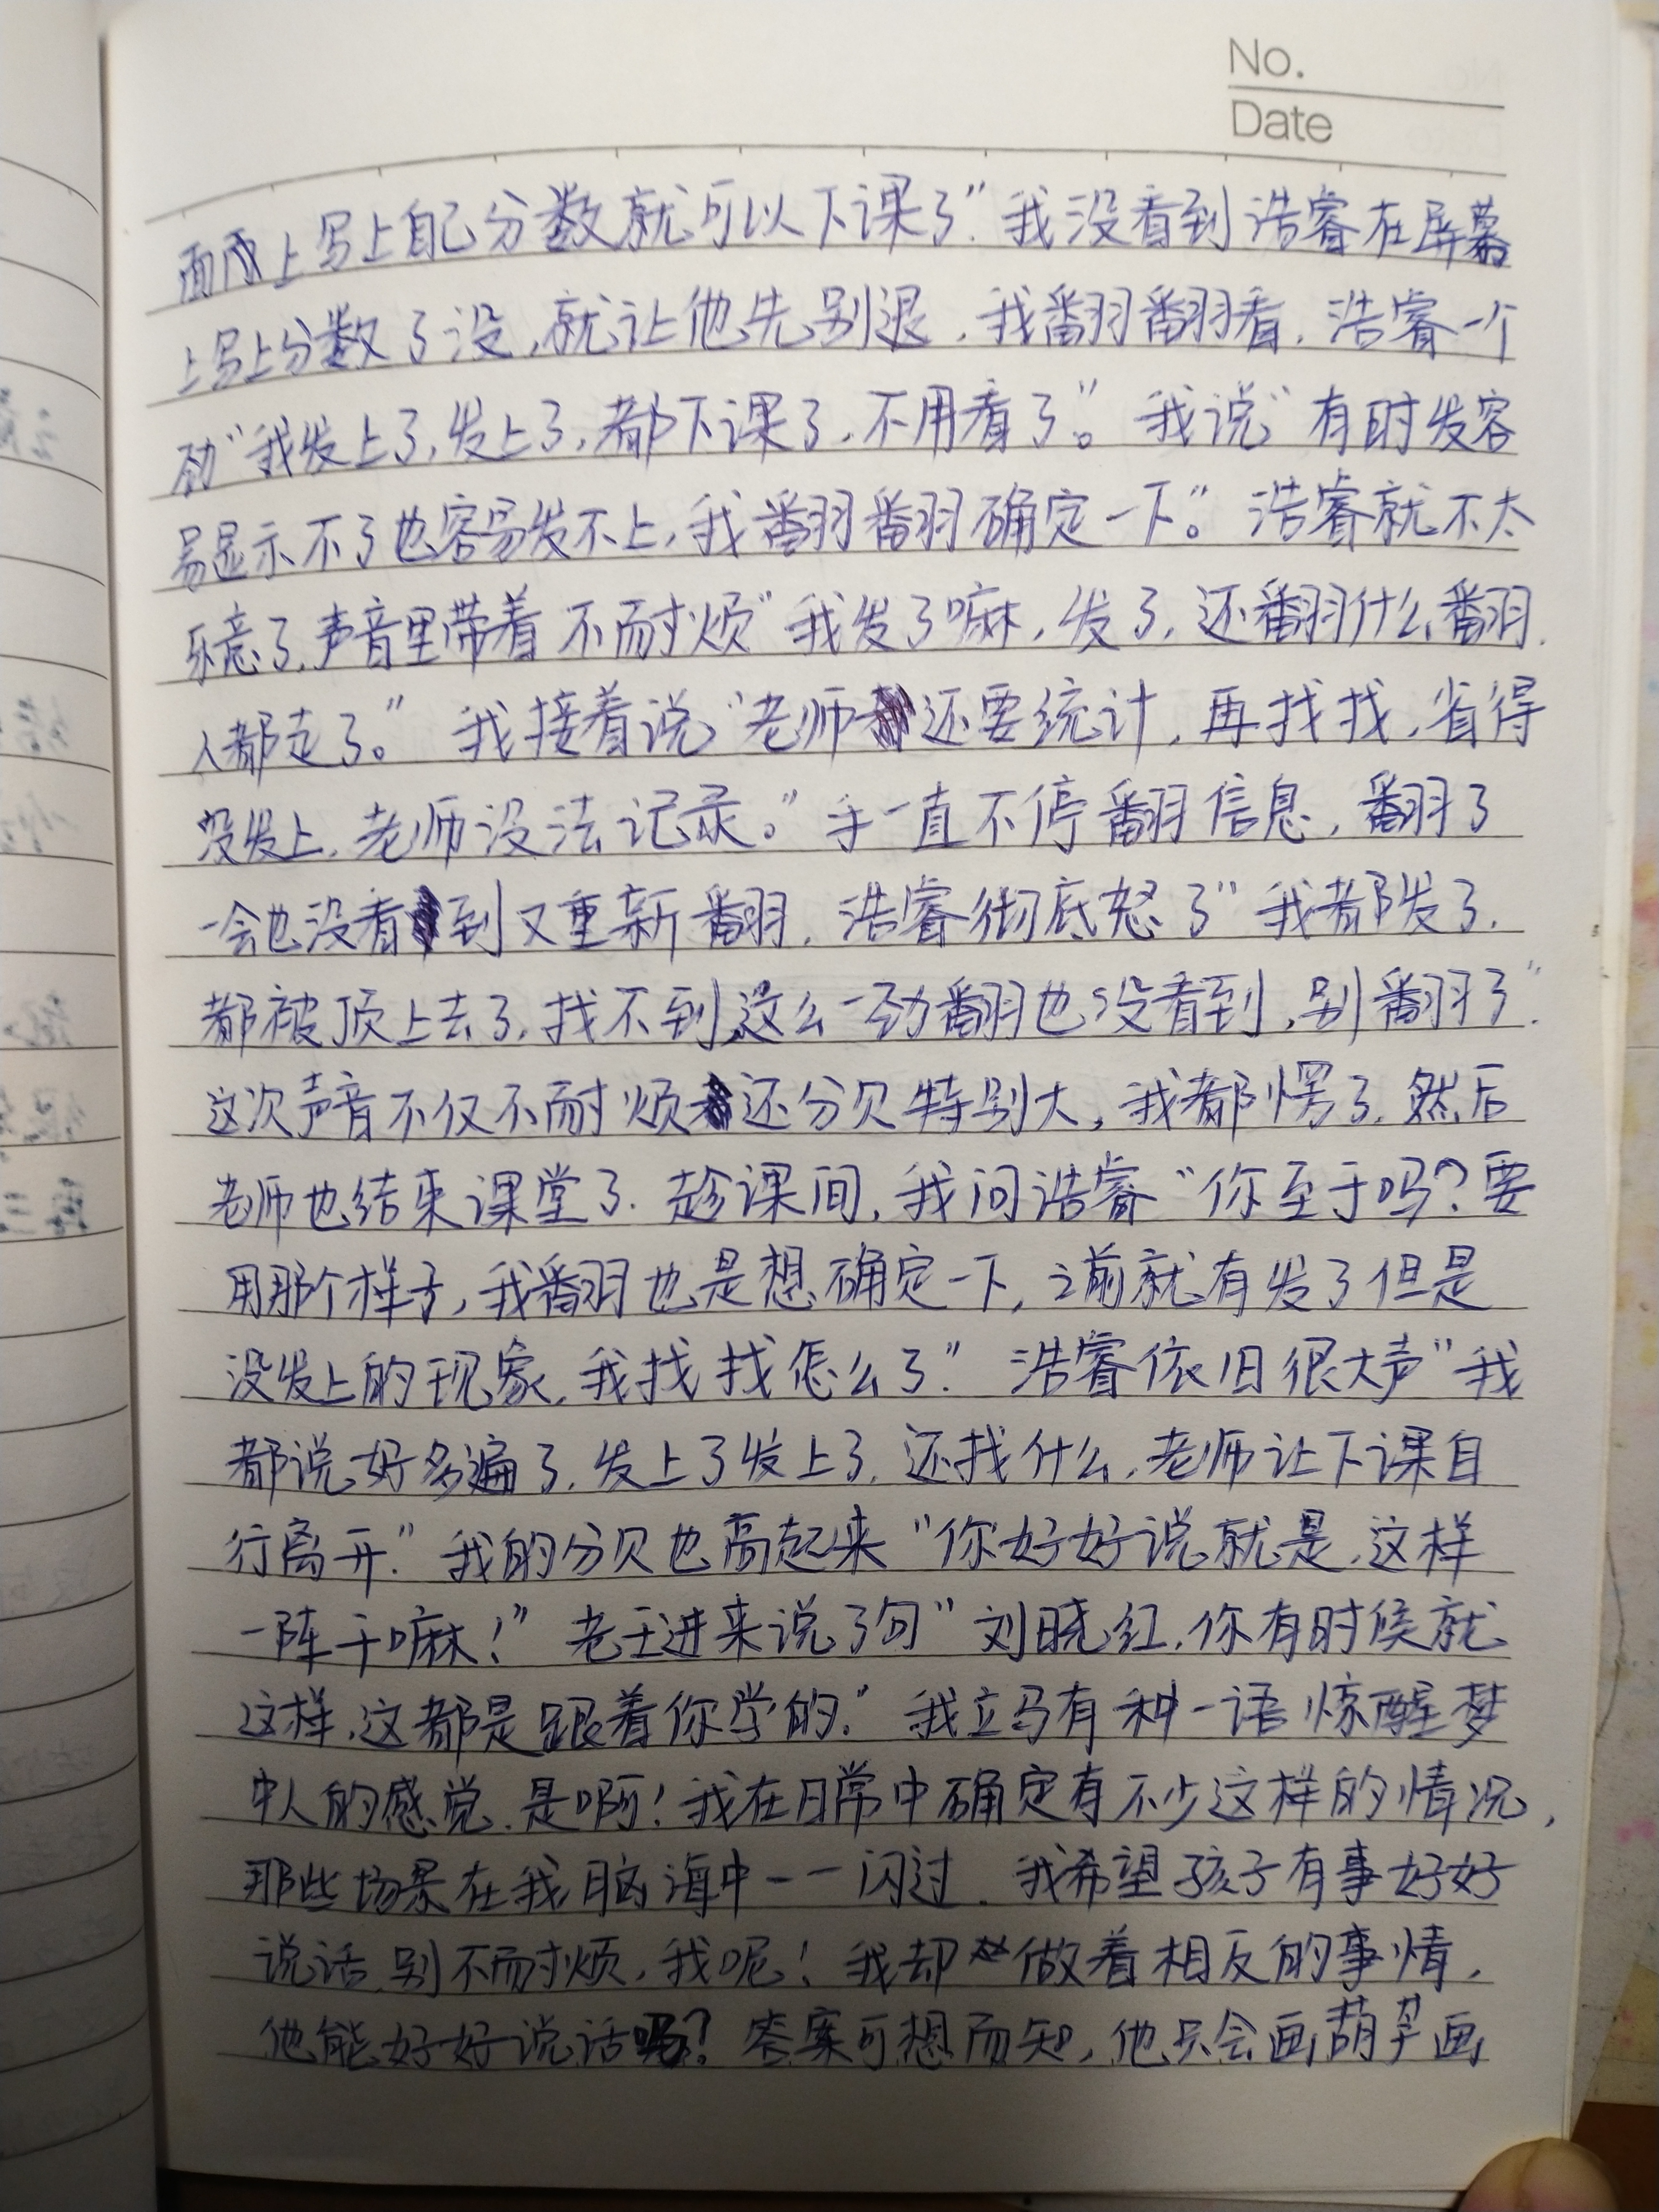 No.
Date
面上写上自己分数就可以下课了”我没看到浩睿在屏幕
上写上分数了没,就让他先别退,我翻翻看,浩睿一个
劲“我发上了,发上了,都下课了,不用看了”。我说“有时发容
易显示不了也容易发不上,我翻翻确定一下。”浩睿就不太
乐意了,声音里带着不耐烦“我发了嘛,发了,还翻什么翻,
人都走了。”我接着说“老师还要统计,再找找,省得
没发上,老师没法记录。”手一直不停翻信息,翻了
一会也没看到又重新翻,浩睿彻底怒了“我都发了,
都被顶上去了,找不到,这么一劲翻也没看到,别翻了”
这次声音不仅不耐烦还分贝特别大,我都愣了,然后
老师也结束课堂了.趁课间,我问浩睿“你至于吗?要
用那个样子,我翻也是想确定一下,之前就有发了但是
没发上的现象,我找找怎么了”浩睿依旧很大声“我
都说好多遍了,发上了发上了,还找什么,老师让下课自
行离开”我的分贝也高起来“你好好说就是,这样
一阵干嘛!”老王进来说了句“刘晓红,你有时候就
这样,这都是跟着你学的”我立马有种一语惊醒梦
中人的感觉.是啊!我在日常中确定有不少这样的情况,
那些场景在我脑海中一一闪过.我希望孩子有事好好
说话,别不耐烦,我呢!我却做着相反的事情,
他能好好说话吗?答案可想而知,他只会画葫芦画